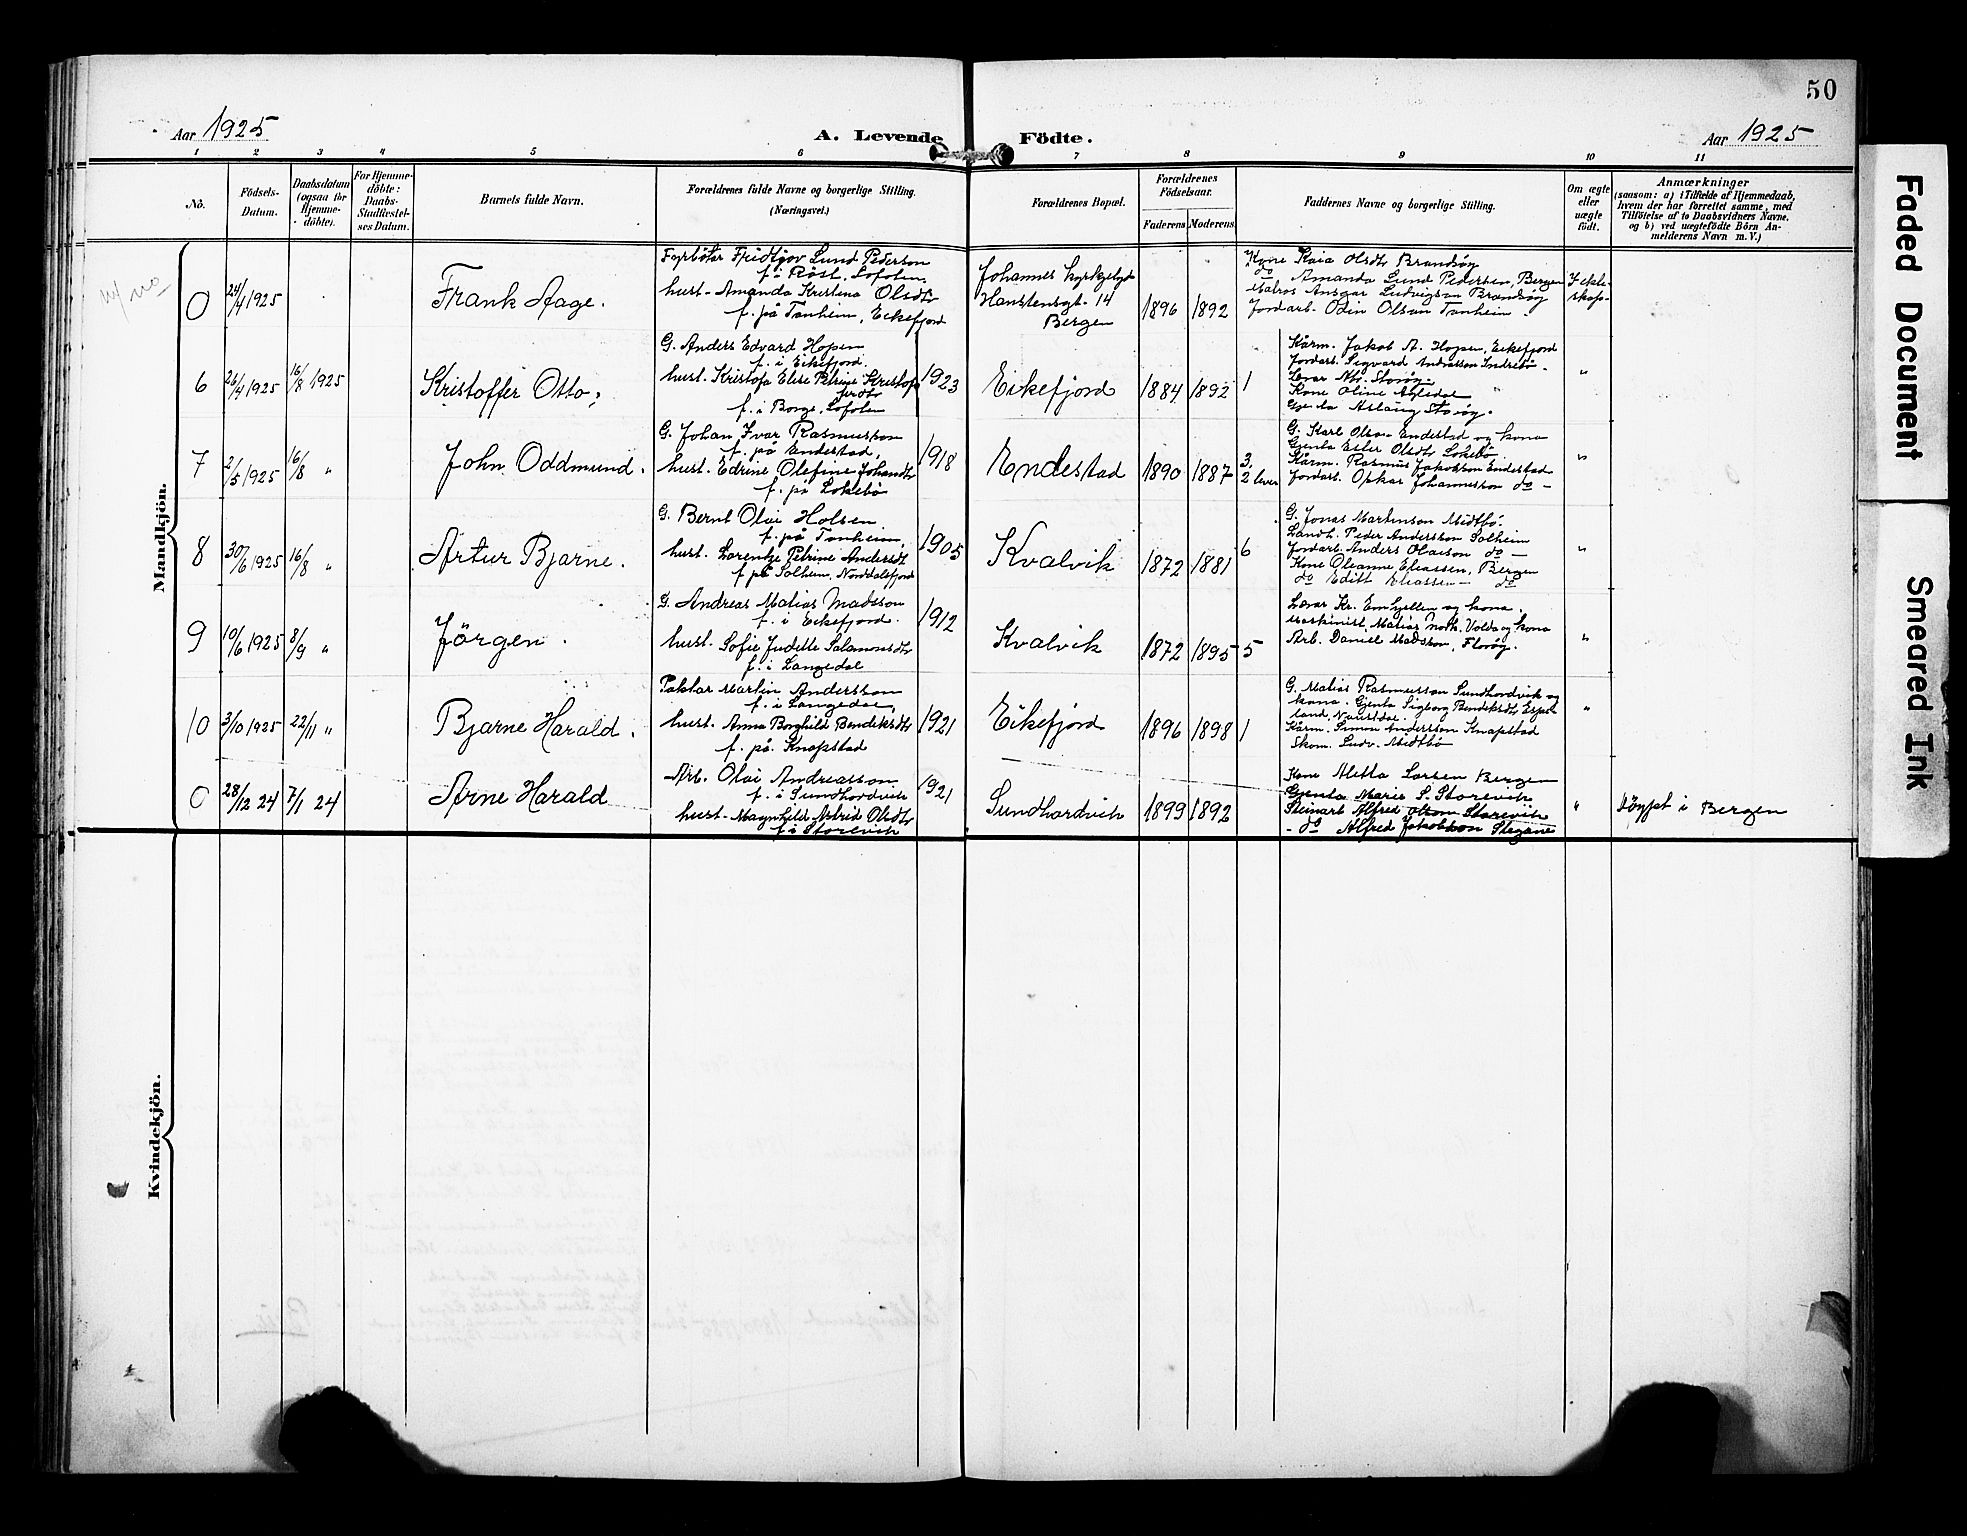 50
Aar 1925
A. Levende Födte.
Aar 1925
1 2 3 4 5 6 7 8 9 10 11
No.
Födsels-Datum.
Daabsdatum (ogsaa for Hjemme-döbte).
For Hjemme-döbte: Daabs-Stadfæstel-ses Datum.
Barnets fulde Navn.
Forældrenes fulde Navne og borgerlige Stilling.
(Næringsvei.)
Forældrenes Bopæl.
Forældrenes Födselsaar.
Faderens
Moderens
Faddernes Navne og borgerlige Stilling.
Om ægte eller uægte födt.
Anmærkninger
(saasom: a) i Tilfælde af Hjemmedaab,
hvem der har forrettet samme, med
Tilföielse af to Daabsvidners Navne,
og b) ved uægtefödte Börn An-
melderens Navn m. V.)
Mandkjön.
0 24/4 1925
Frank Aage.
Fyrbøter Fridtjov Lund Pederson
f. i Röst, Lofoten.
hust. Amanda Kristina Olsdtr
f. på Tonheim, Eikefjord
Johannes Kyrkjebygd
Hanstensgt. 14
Bergen
1896 1892
Kone Kaia Olsdtr Brandsøy
do Amanda Lund Pedersen, Bergen
Matros Ansgar Ludvigson Brandsøy
Jordarb. Odin Olson Tonheim.
I ekte-
skap.
6 26/4 1925 16/8 1925
Kristoffer Otto.
G. Anders Edvard Hopen
f. i Eikefjord.
hust. Kristofa Elise Petrine Kristofa
ferdtr
f. i Borge, Lofoten
1923
Eikefjord
1884 1892 1
Kårm. Jakob A. Hopen, Eikefjord
Jordarb. Sigvard Andreasson Indrebö.
Kone Oline Aglsdal
Gjenta Aslaug Storöy.
"
7 2/5 1925 16/8 "
John Oddmund.
G. Johan Ivar Rasmusson
f. på Endestad,
hust. Edrine Olefine Johansdtr
f. på Lokebö
1918
Endestad
1890 1887 3, 2 lever
G. Karl Olson Endestad og kona
Gjenta Ester Olsdtr Lokebö
Kårm. Rasmus Jakobson Endestad
Jordarb. Oskar Johannesson do -
"
8 30/6 1925 16/8 "
Artur Bjarne.
G. Bernt Olai Holsen
f. på Tonheim,
hust. Lorentze Petrine Andersdt
f. på Solheim, Norddalsfjord
1905
Kvalvik
1872 1881 6
G. Jonas Martinson Midtbö.
Landh. Peder Andersson Solheim
Jordarb. Anders Olaison do -
Kone Oleanne Eliassen, Bergen
do Edith Eliassen - do
"
9 10/6 1925 8/9 "
Jörgen.
G. Andreas Matias Madsson
f. i Eikefjord.
hust. Sofie Judette Salamonsdtr
f. i Langedal
1912
Kvalvik
1872 1895 5
Lærar Kr. Emhjellen og kona.
Maskinist Matias Nork, Volda og kona
Arb. Daniel Madsson, Floröy.
"
10 3/10 1925 22/11 "
Bjarne Harald.
Paktar Martin Andersson
f. i Langedal,
hust. Anna Borghild Bendiksdtr
f. på Knapstad
1921
Eikefjord
1896 1898 1
G. Matias Rasmusson Sundhordvik og
kona. Gjenta Sigborg Bendiksdtr Espe-
land, Naustdal.
Kårm. Simon Andersson Knapstad
Skom. Ludv. Midtbö
"
0 28/12 24 7/1 24
Arne Harald
Arb. Olai Andreasson
f. i Sundhordvik
hust. Magnhild Astrid Olsdtr
f. i Storevik
1921
Sundhordvik
1899 1892
Kone Aletta Larsen Bergen
Gjenta Marie S. Storevik
Steinarb. Alfred Olson Storevik
- do Alfred Jakobson Stegane
"
Döypt i Bergen
Kvindekjön.
Faded Document
Smeared Ink